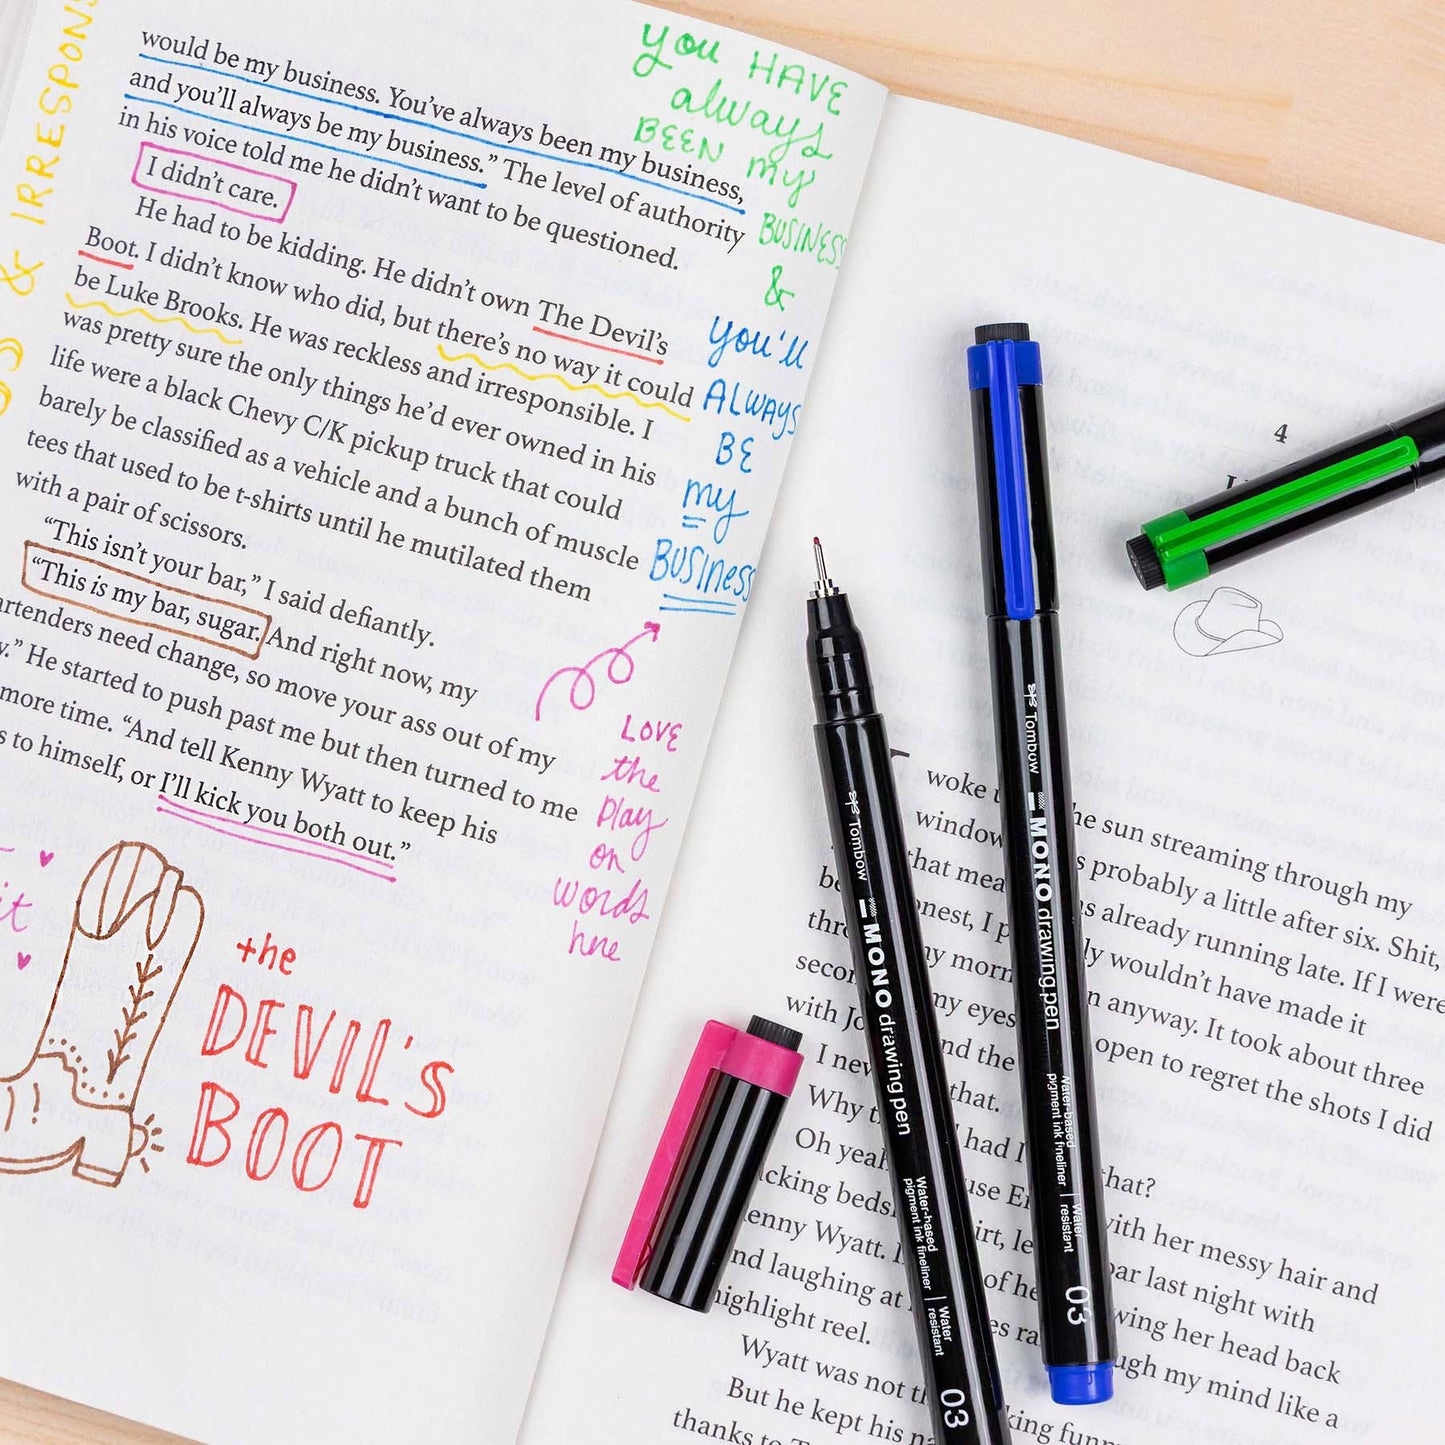 would be my business. You've always been my business,
and you'll always be my business." The level of authority
in his voice told me he didn't want to be questioned.
I didn't care.
He had to be kidding. He didn't own The Devil's
Boot. I didn't know who did, but there's no way it could
be Luke Brooks. He was reckless and irresponsible. I
was pretty sure the only things he'd ever owned in his
life were a black Chevy C/K pickup truck that could
barely be classified as a vehicle and a bunch of muscle
tees that used to be t-shirts until he mutilated them
with a pair of scissors.
"This isn't your bar," I said defiantly.
"This is my bar, sugar. And right now, my
need change, so move your ass out of my
He started to push past me but then turned to me
more time. "And tell Kenny Wyatt to keep his
to himself, or I'll kick you both out."
& IRRESPONS
YOU HAVE
always
BEEN my
BUSINESS
&
you'll
ALWAYS
BE
my
BUSINESS
LOVE
the
play
on
words
here
it
the
DEVIL'S
BOOT
4
woke the sun streaming through my
window probably a little after six. Shit,
that already running late. If I were
I wouldn't have made it
my anyway. It took about three
my eyes open to regret the shots I did
with and the
I that.
Why had I that?
Oh with her messy hair and
bar last night with
Kenny Wyatt. of her head back
and laughing at through my mind like a
highlight reel.
Wyatt was not
But he kept his
thanks to
Tombow
MONO drawing pen
Water-based
pigment ink fineliner
Water
resistant
03
Tombow
MONO drawing pen
Water-based
pigment ink fineliner
Water
resistant
03